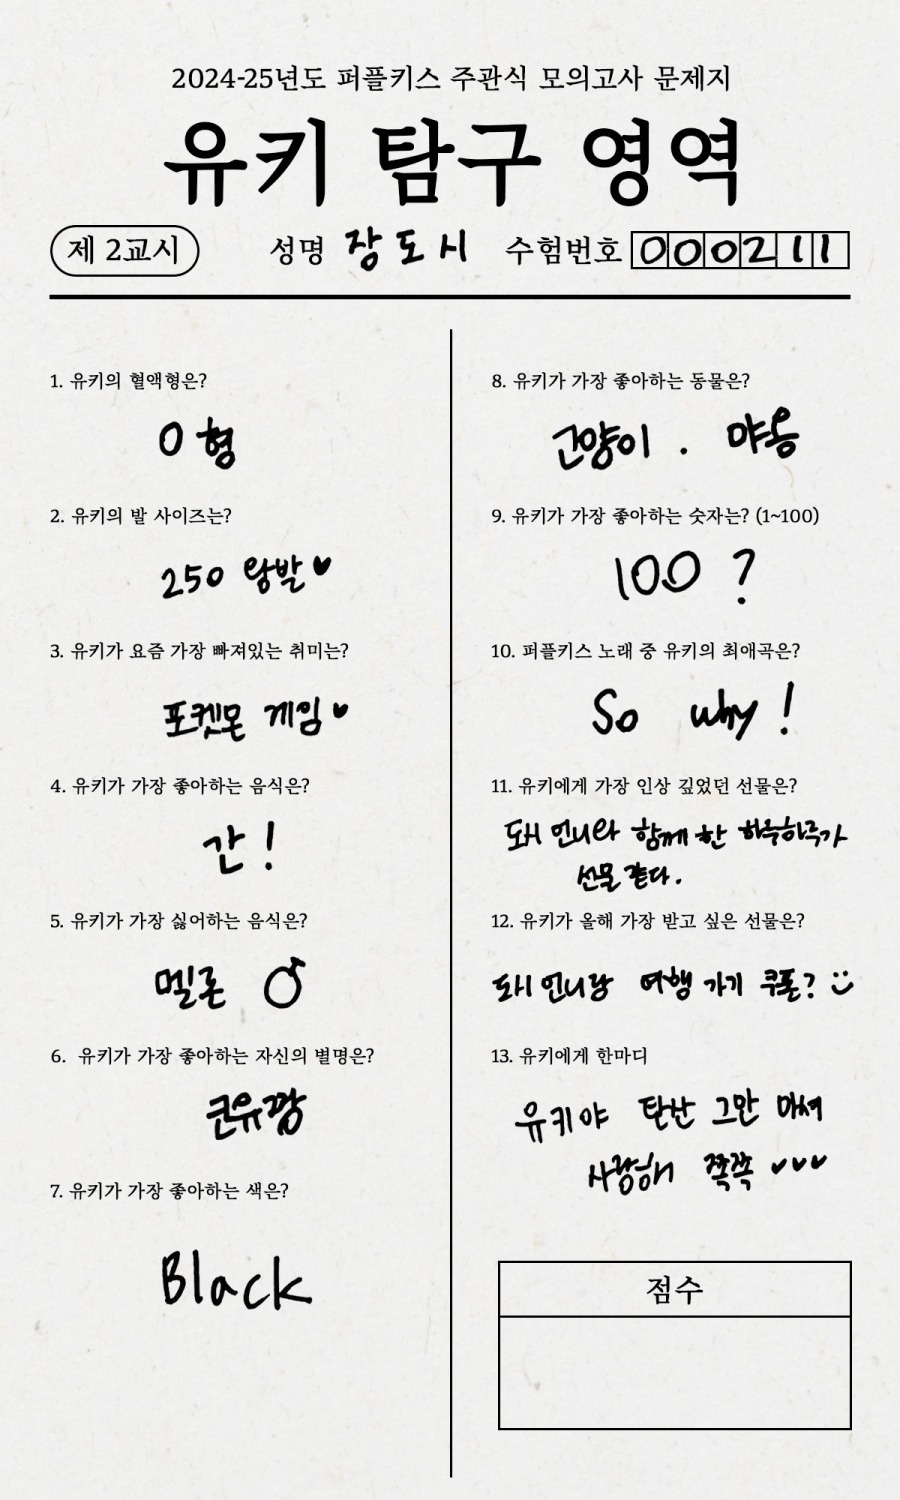 2024-25년도 퍼플키스 주관식 모의고사 문제지
유키 탐구 영역
제 2교시 성명 장도시 수험번호 000211
1. 유키의 혈액형은?
O형
2. 유키의 발 사이즈는?
250 왕발♥
3. 유키가 요즘 가장 빠져있는 취미는?
포켓몬 게임♥
4. 유키가 가장 좋아하는 음식은?
간!
5. 유키가 가장 싫어하는 음식은?
멜론
6. 유키가 가장 좋아하는 자신의 별명은?
큰유깡
7. 유키가 가장 좋아하는 색은?
Black
8. 유키가 가장 좋아하는 동물은?
고양이. 야옹
9. 유키가 가장 좋아하는 숫자는? (1~100)
100?
10. 퍼플키스 노래 중 유키의 최애곡은?
So why!
11. 유키에게 가장 인상 깊었던 선물은?
도시 언니와 함께 한 하루하루가
선물 같다.
12. 유키가 올해 가장 받고 싶은 선물은?
도시 언니랑 여행 가기 쿠폰? :)
13. 유키에게 한마디
유키야 탄산 그만 마셔
사랑해 쪽쪽 ♥♥♥
점수